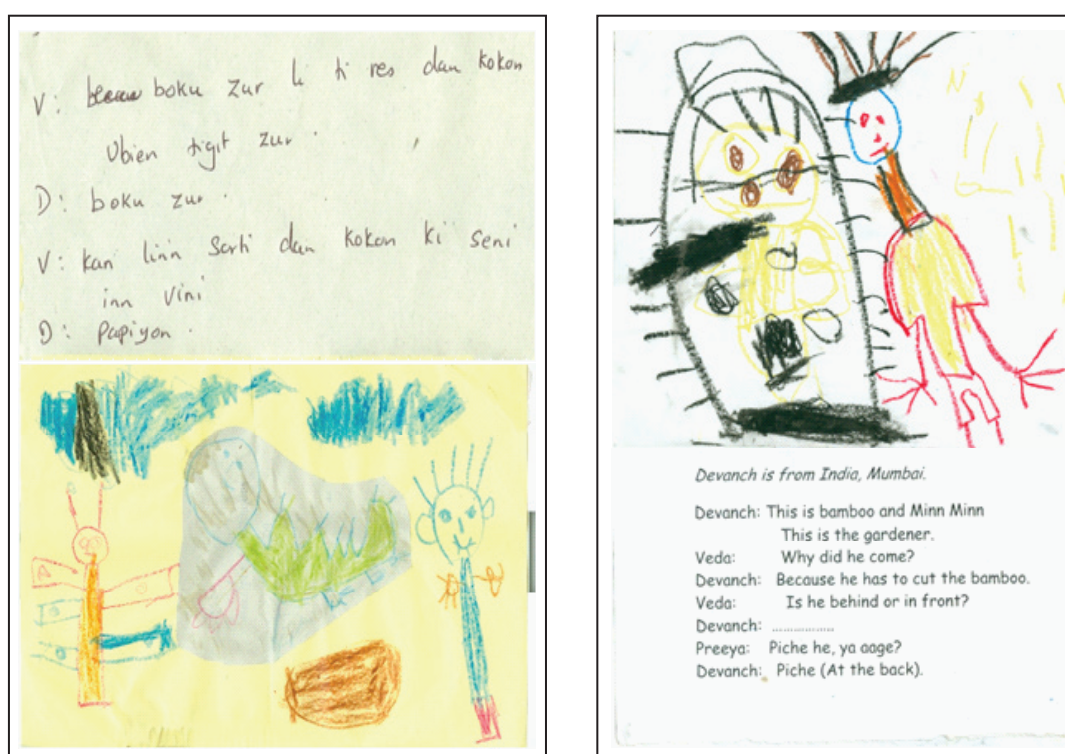 V: boku zur li ti res dan kokon
Ubien tigit zur.
D: boku zur.
V: kan linn sorti dan kokon ki seni
inn vini
D: Papiyon.
Devanch is from India, Mumbai.
Devanch: This is bamboo and Minn Minn
This is the gardener.
Veda: Why did he come?
Devanch: Because he has to cut the bamboo.
Veda: Is he behind or in front?
Devanch: .................
Preeya: Piche he, ya aage?
Devanch: Piche (At the back).